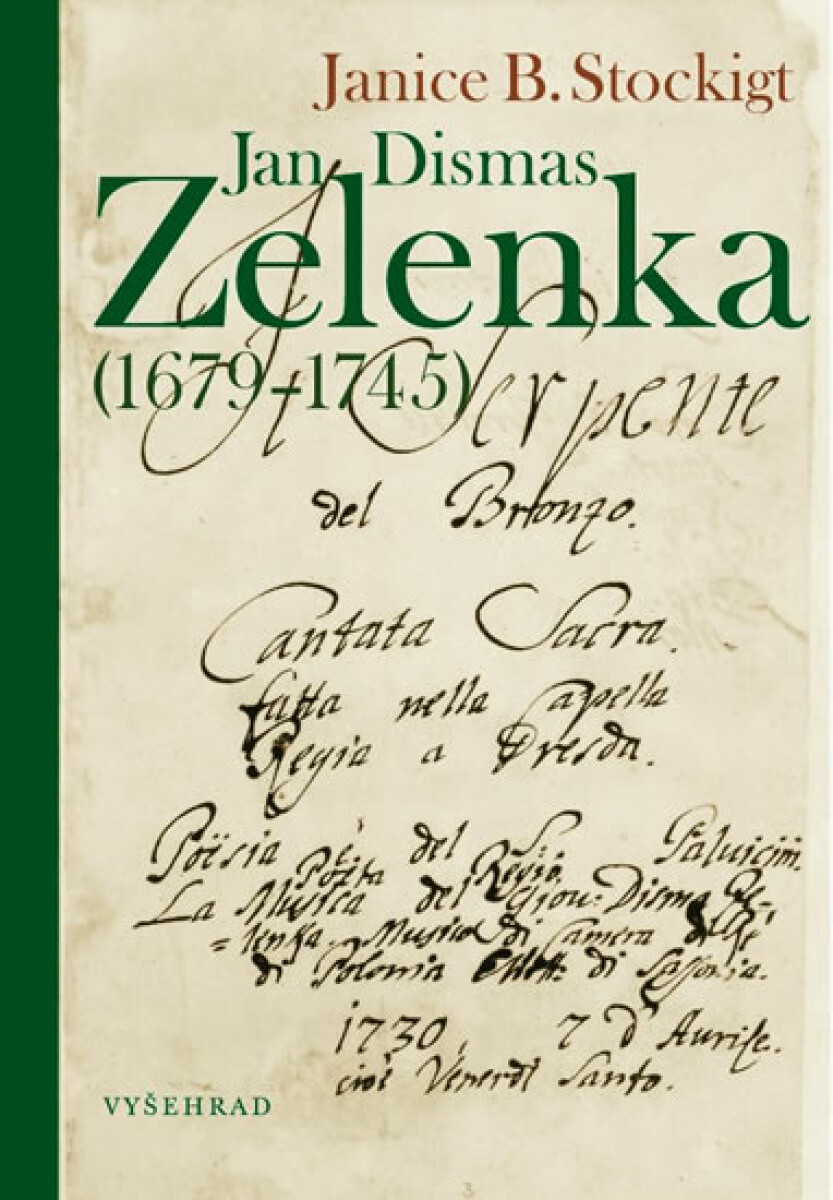 Janice B. Stockigt
Jan Dismas
Zelenka
(1679–1745)
Il Serpente
del Bronzo.
Cantata Sacra.
fatta nella Capella
Regia a Dresda.
Poësia è del S. Paluicini.
Poëta Regio.
La Musica del Giou: Disma Ze-
=lenka Musico di Camera
di Polonia di Sassonia.
1730, 7 d'Aurile.
cioè Venerdi Santo.
VYŠEHRAD
3